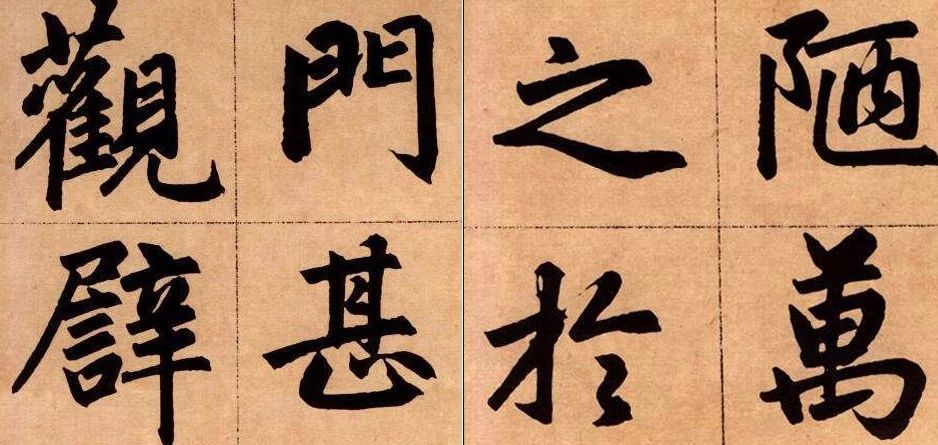 陋萬
之於
門甚
觀譬